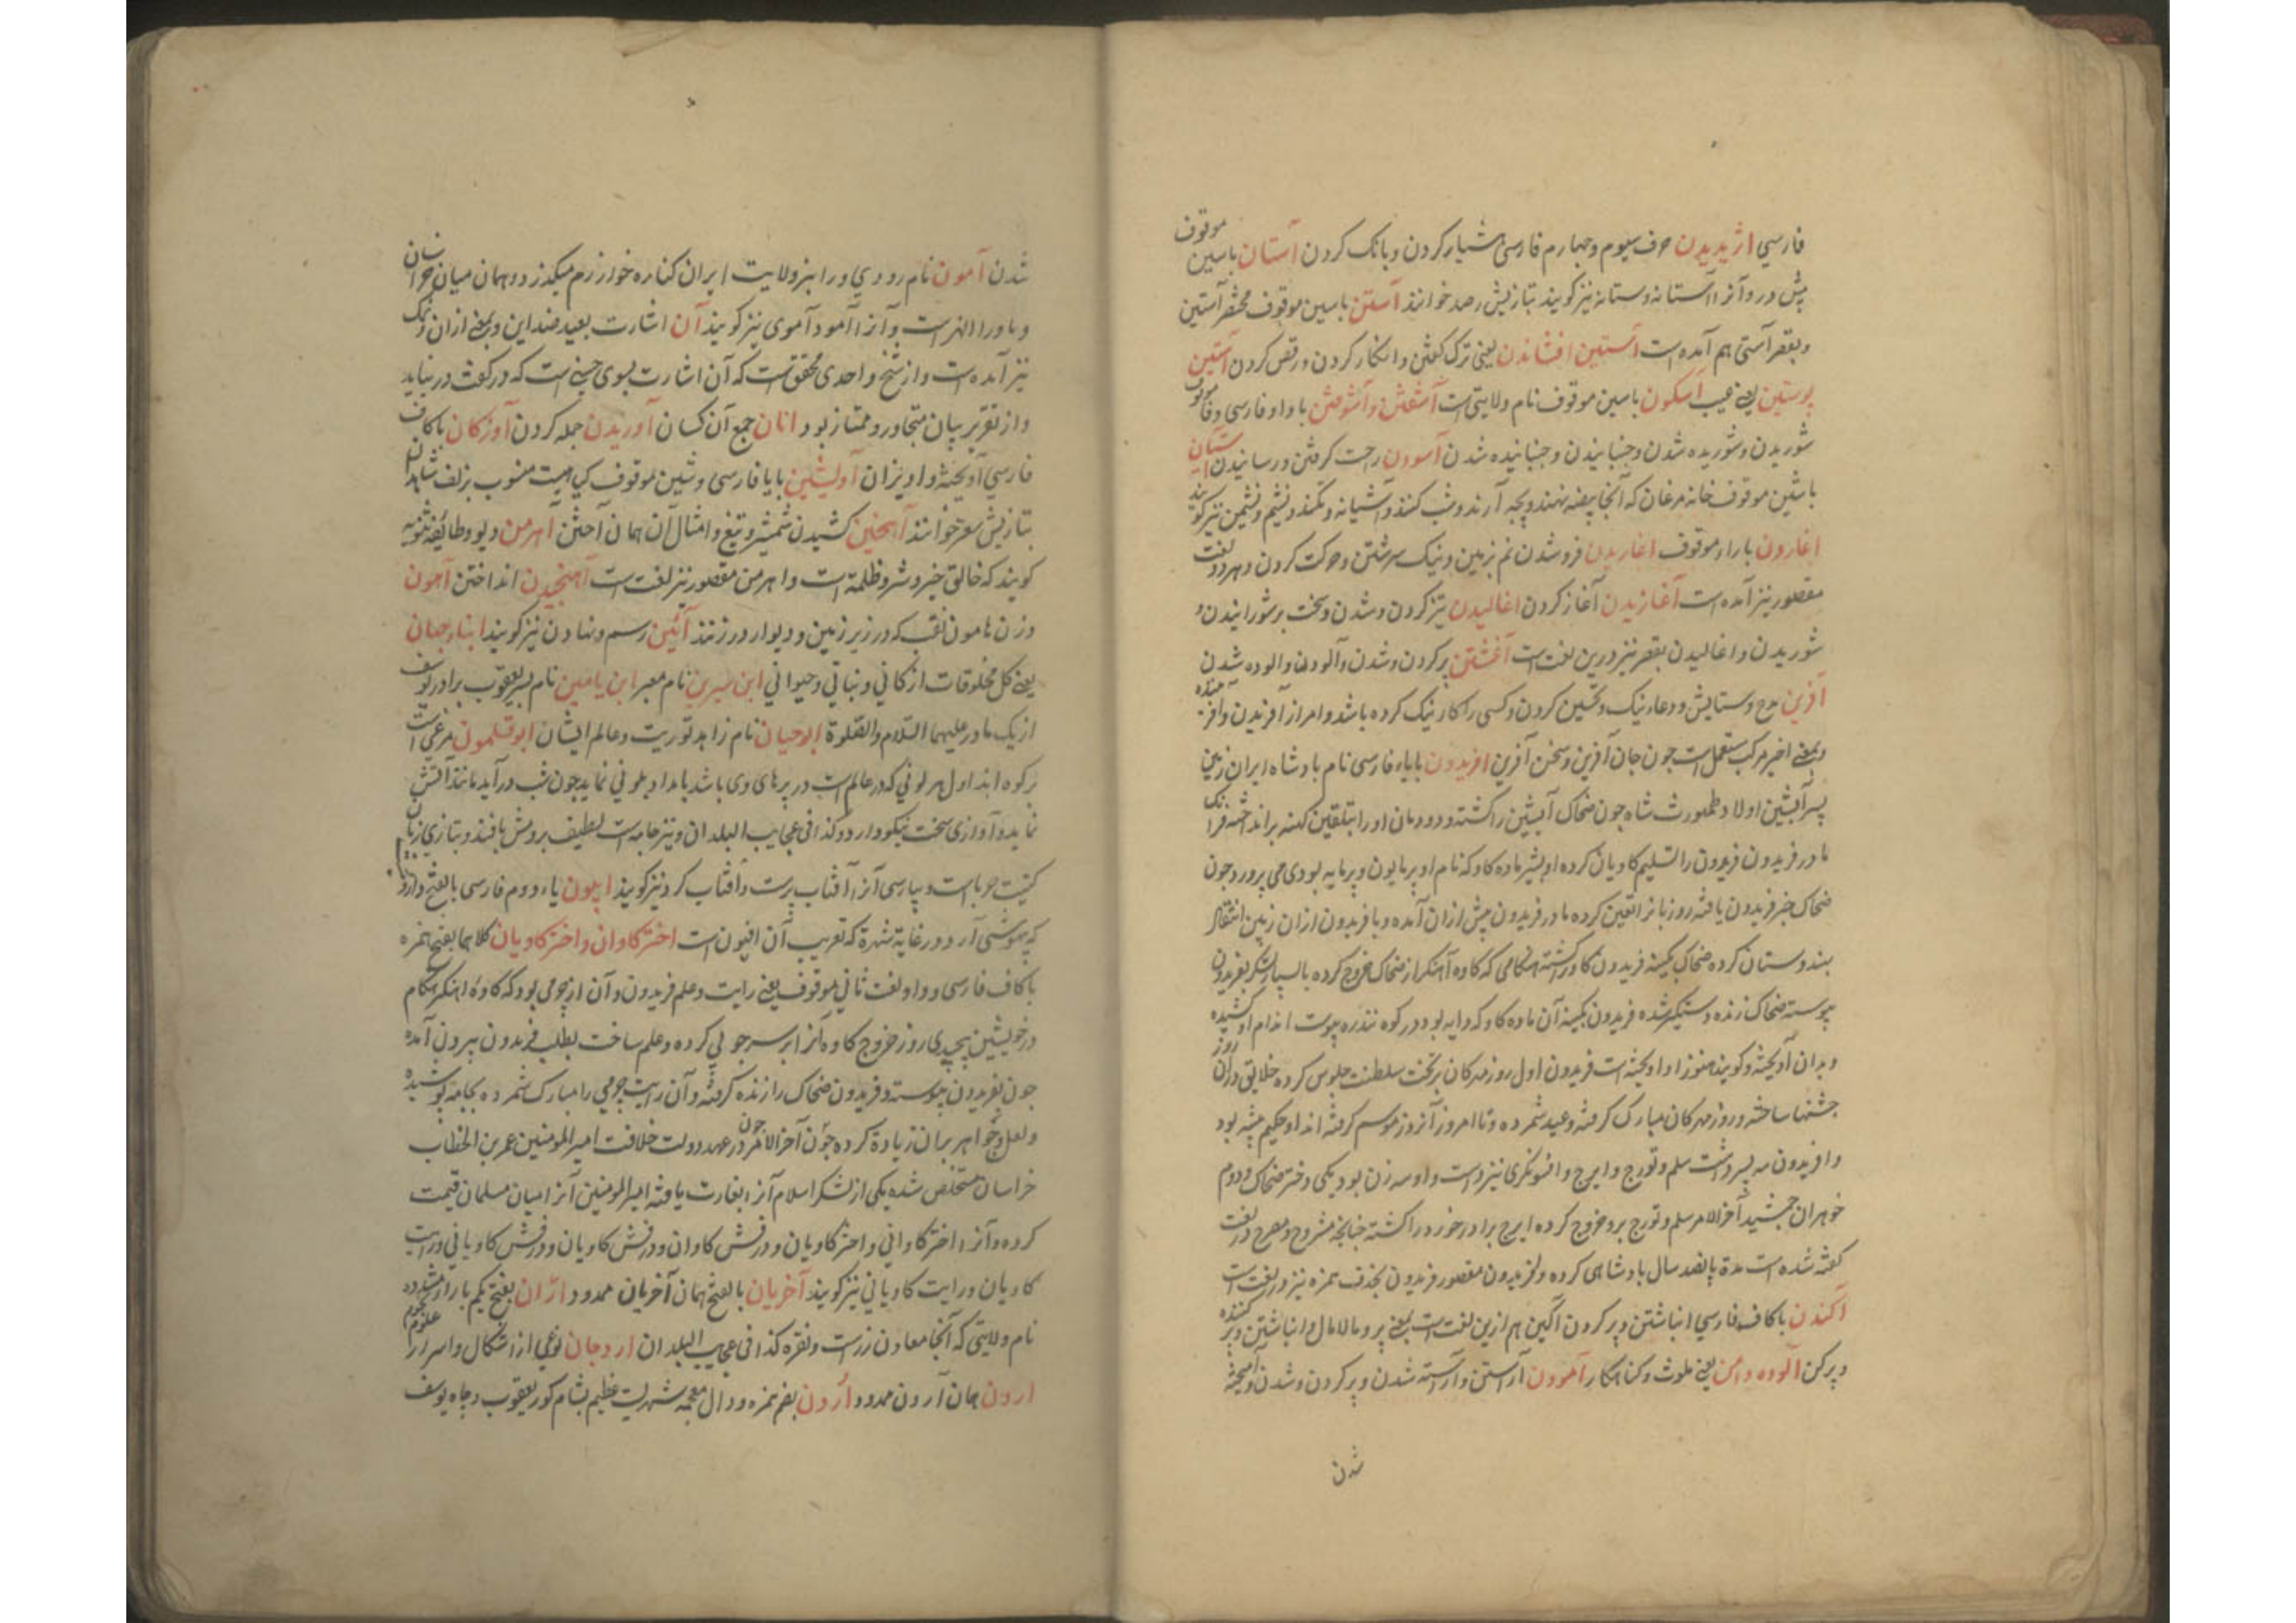 فارسی اژیدیدن حرف سیوم و چهارم فارسی هشیار کردن و بانک کردن آستان باسین موقوف
پیش در و آنرا آستانه و ستانه نیز کویند تبازیش رصد خوانند آستن باسین موقوف مختصر آستین
و بقصر آستی هم آمده است آستین افشاندن یعنی ترک کفتن و انکار کردن و رقص کردن آستین
پوستین یعنی عیب آسکون باسین موقوف نام ولایتی است آشفتن و آشوفتن با واو فارسی و فا موقوف
شوریدن و شوریده شدن و جنبانیدن و جنبانیده شدن آسودن راحت کرفتن و رسانیدن
باشین موقوف خانه مرغان که آنجا بیضه نهند و بچه آرند و شب کنند و آشیانه و نشیم و نشیمن نیز کویند
اغاردن باراء موقوف اغاریدن فرو شدن نم بزمین و نیک سرشتن و حرکت کردن و هر دو لغت
مقصور نیز آمده است آغازیدن آغاز کردن اغالیدن تیز کردن و شدن و سخت بر شورانیدن و
شوریدن و اغالیدن بقصر نیز درین لغت است آغشتن پر کردن و شدن و آلودن و آلوده شدن
آفرین مدح و ستایش و دعاء نیک و تحسین کردن و کسی را کار نیک کرده باشد و امر از آفریدن و آفریننده
و بمعنی اخیر مرکب مستعمل است جون جان آفرین و سخن آفرین افریدون بایاء فارسی نام بادشاه ایران زمین
پسر آبتین اولاد طهمورث شاه جون ضحاک آبتین را کشته و دودمان او را بتلقین کهنه براند اخته فرانک
مادر فریدون فریدون را تسلیم کاویان کرده او بشیر ماده کاو که نام او برمایون و پرمایه بودی می پرورد جون
ضحاک خبر فریدون یافته روزبانرا تعین کرده مادر فریدون پیش ازان آمده و با فریدون ازان زمین انتقال
بهندوستان کرده ضحاک بکینه فریدون کاو را کشته هنکامی که کاوه آهنکر از ضحاک خروج کرده با سپاه و لشکر بفریدون
پیوسته ضحاک زنده دستکیر شده فریدون بکینه آن ماده کاو که دایه بود در کوه پوست اندام او کشیده
و بدان آویخته و کویند هنوز او آویخته است فریدون اول روز مهرکان بر تخت سلطنت جلوس کرده خلایق دران روز
جشنها ساخته و روز مهرکان مبارک کرفته و عید شمرده و تا امروز آنروز موسم کرفته اند او حکیم پیشه بود
و افریدون سه پسر داشت سلم و تورج و ایرج و افسونکری نیز دانست و او سه زن بود یکی دختر ضحاک و دوم
خوهران جمشید آخر الامر سلم و تورج برو خروج کرده ایرج برادر خورد را کشته جنانچه مشروح و مصرح در لغت
کفته شده است مدة پانصد سال بادشاهی کرده و فریدون مقصور فریدون بحذف همزه نیز در لغت است
آکندن باکاف فارسی انباشتن و پر کردن آکین هم ازین لغت است بمعنی پر و مالامال و انباشتن و پر کننده
و پر کن آلوده دامن یعنی ملوث و کناهکار آمودن آراستن و آراسته شدن و پر کردن و شدن و آمیخته
شدن
شدن آمون نام رودی ورا بزولایت ایران کناره خوارزم میکذرد و همان میان خراسان
و ماوراءالنهر است و آنرا آمو و آموی نیز کویند آن اشارت بعید ضد این و بمعنی ازان و نمک
نیز آمده است و از شیخ واحدی محقق است که آن اشارت بسوی حسنی است که در کفت در نیاید
و از تقریر بیان متجاوز و ممتاز بود انان جمع آن کسان آوریدن حمله کردن آوژکان باکاف
فارسی آویخته و اویزان آویشین بایا فارسی و شین موقوف کیاهیست منسوب بزلف شاهدان
بتازیش سعتر خوانند آهختن کشیدن شمشیر و تیغ و امثال آن همان آختن آهرمن دیو و طائفه ثنویه
کویند که خالق خیر و شر و ظلمة است و اهرمن مقصور نیز لغت است آهنجیدن انداختن آهون
وزن هامون نقب که در زیر زمین و دیوار در زنند آئین رسم و نهادن نیز کویند ابناء جهان
یعنی کل مخلوقات از کانی و نباتی و حیوانی ابن سیرین نام معبر ابن یامین نام پسر یعقوب برادر یوسف
از یک مادر علیهما السلام و الصلوة ابو حیان نام زاهد توریت و عالم ایشان ابو قلمون مرغی است
برکوه اند اول هر لونی که در عالم است در پرهای وی باشد بامداد بلونی نماید جون شب درآید مانند آتش
نماید و آوازی سخت نیکو دارد و کذا فی عجایب البلدان و نیز جامه است لطیف بروش بافند و بتازی زبان
کنیت حرباست و بپارسی آنرا آفتاب پرست و آفتاب کردنیز کویند اپیون یاء دوم فارسی بالفتح داروء
که بیهوشی آرد در غایة شهرة که تعریب آن افیون است اختر کاوان و اختر کاویان کلاهما بفتح همزه
باکاف فارسی و واو لغت ثانی موقوف یعنی رایت و علم فریدون و آن از جرمی بود که کاوه آهنکر هنکام
در خویشتن پیچیدی روز خروج کاوه آنرا بر سر جوبی کرده و علم ساخت بطلب فریدون بیرون آمده
جون بفریدون پیوسته و فریدون ضحاک را زنده کرفته و آن رایت جرمی را مبارک شمرده بجامه پوشیده
و لعل و جواهر بران زیادة کرده جون آخر الامر در عهد دولت خلافت امیر المومنین عمر بن الخطاب
خراسان مستخلص شده یکی از لشکر اسلام آنرا بغارت یافته امیر المومنین آنرا میان مسلمان قیمت
کرده و آنرا اختر کاوانی و اختر کاویان و درفش کاوان و درفش کاویان و درفش کاویانی و رایت
کاویان و رایت کاویانی نیز کویند آخریان بالفتح همان آخریان ممدود ارّان بفتح یکم باراء مشدد
نام ولایتی که آنجا معادن زرست و نقره کذا فی عجایب البلدان ارد جان نوعی از اشکال و اسرار علوم نجوم
اردن همان آردن ممدود اردن بضم همزه و دال معجمه شهریست عظیم بشام کور یعقوب و چاه یوسف